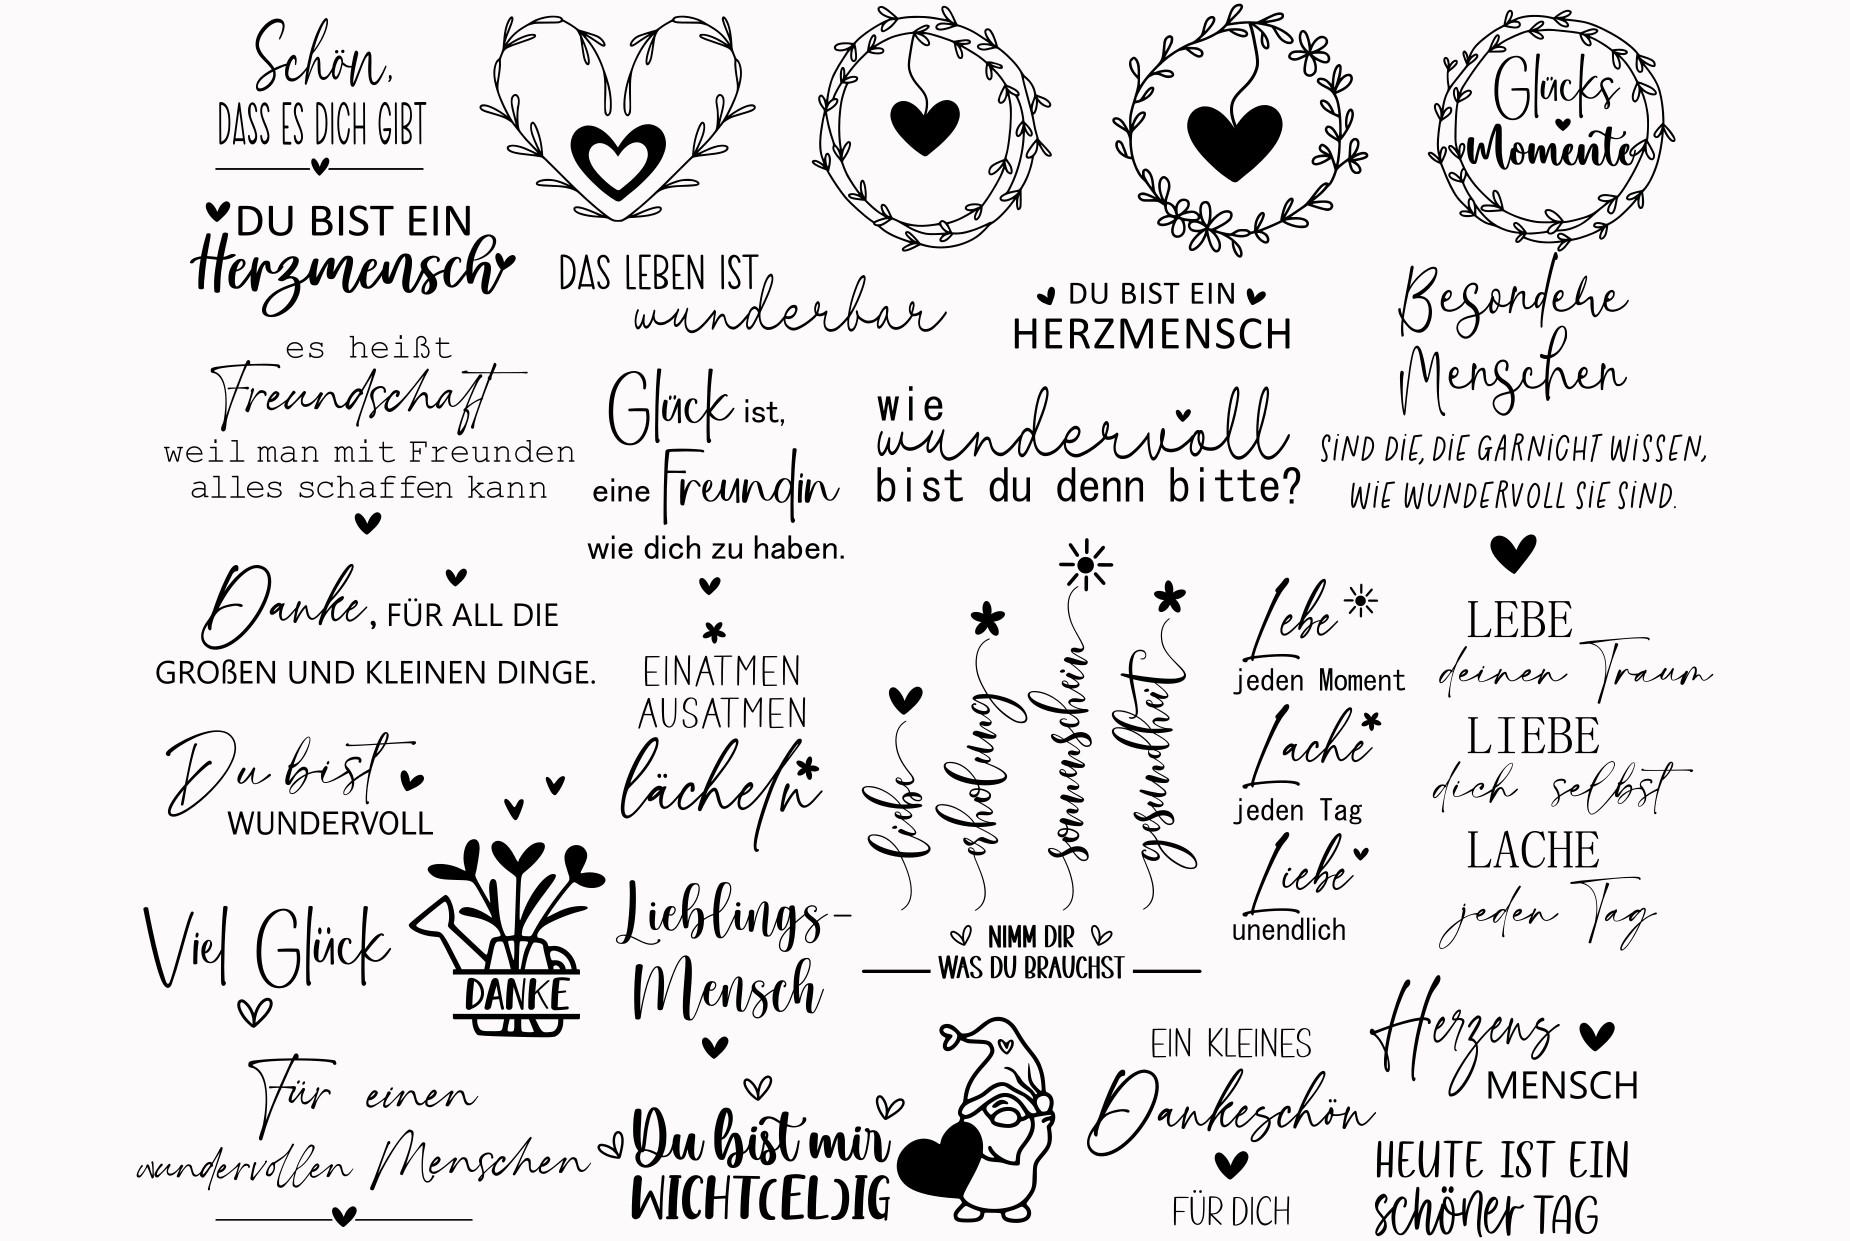 Schön,
DASS ES DICH GIBT
Glücks
Momente
DU BIST EIN
Herzmensch
DAS LEBEN IST
wunderbar
DU BIST EIN
HERZMENSCH
Besondere
Menschen
SIND DIE, DIE GARNICHT WISSEN,
WIE WUNDERVOLL SIE SIND.
es heißt
Freundschaft
weil man mit Freunden
alles schaffen kann
Glück ist,
eine Freundin
wie dich zu haben.
wie
wundervoll
bist du denn bitte?
Danke, FÜR ALL DIE
GROßEN UND KLEINEN DINGE.
EINATMEN
AUSATMEN
lächeln
liebe
erholung
sonnenschein
gesundheit
NIMM DIR
WAS DU BRAUCHST
Lebe
jeden Moment
Lache
jeden Tag
Liebe
unendlich
LEBE
deinen Traum
LIEBE
dich selbst
LACHE
jeden Tag
Du bist
WUNDERVOLL
Viel Glück
DANKE
Lieblings-
Mensch
Für einen
wundervollen Menschen
Du bist mir
WICHT(EL)IG
EIN KLEINES
Dankeschön
FÜR DICH
Herzens
MENSCH
HEUTE IST EIN
schöner TAG